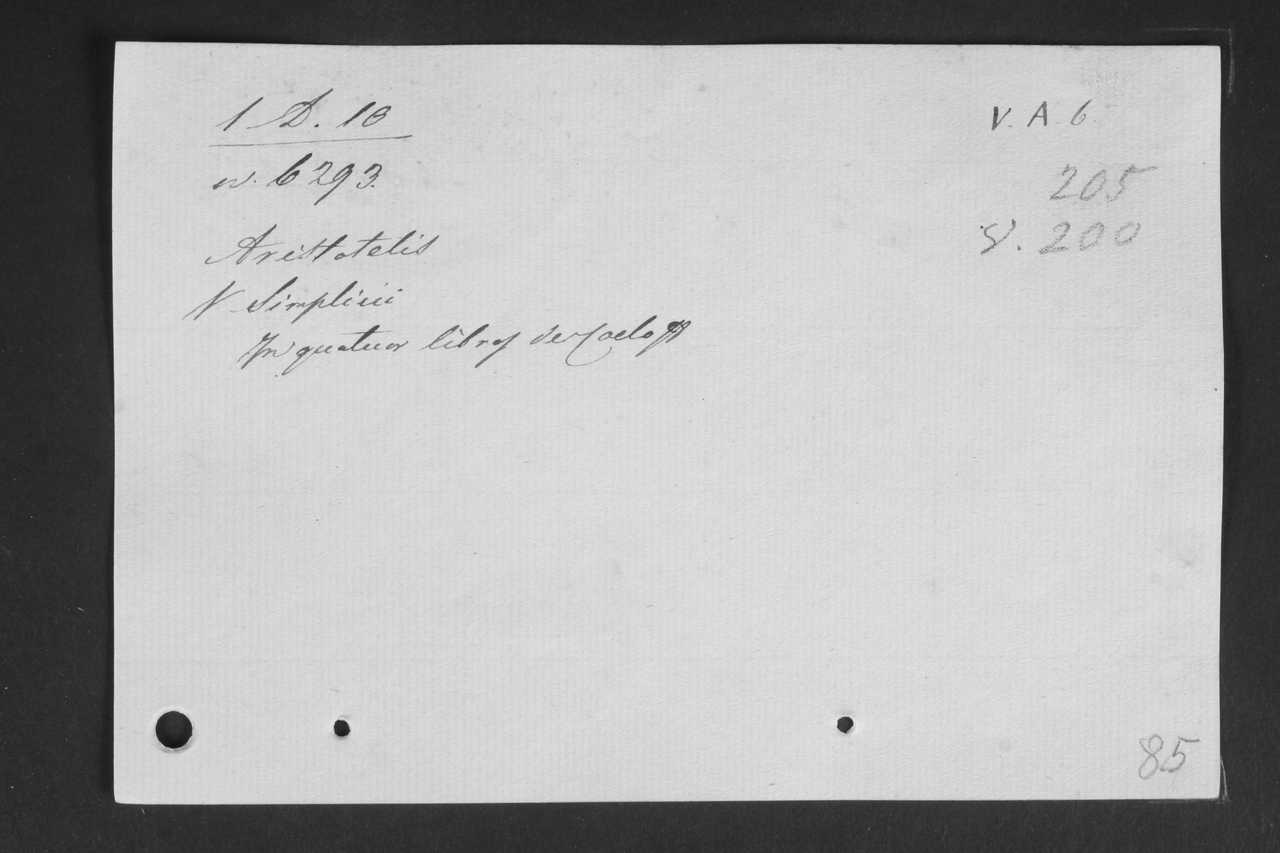 1 D. 18
n. 6293.
Aristotelis
V Simplicii
In quatuor libros de Caelo
V. A. 6.
205
V. 200
85